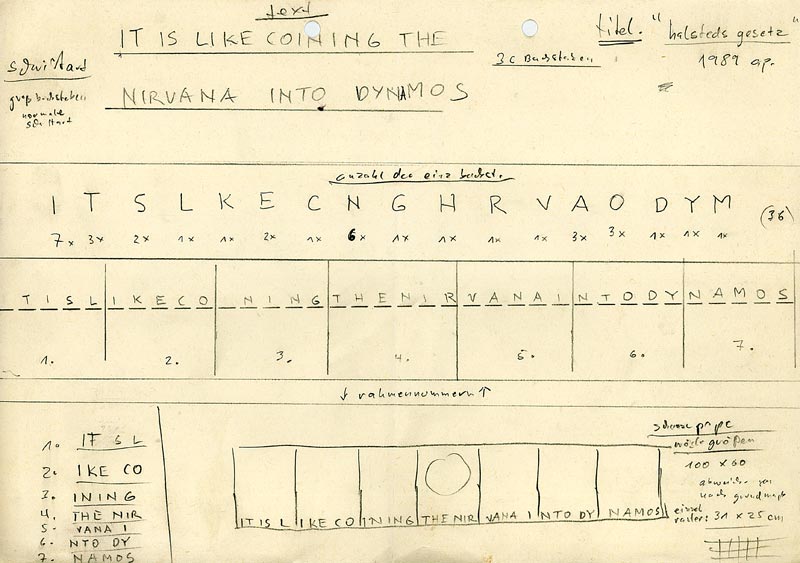 text
IT IS LIKE COINING THE
titel. "halsteds gesetz"
1989 ap.
36 Buchstaben
schriftart
groß buchstaben
normale
schriftart
NIRVANA INTO DYNAMOS
anzahl der einz buchst.
I T S L K E C N G H R V A O D Y M (36)
7x 3x 2x 1x 1x 2x 1x 6x 1x 1x 1x 1x 3x 3x 1x 1x 1x
T I S L I K E C O N I N G T H E N I R V A N A I N T O D Y N A M O S
1. 2. 3. 4. 5. 6. 7.
↓ rahmennummern ↑
1. IT S L
2. IKE CO
3. INING
4. THE NIR
5. VANA I
6. NTO DY
7. NAMOS
IT IS L IKE CO INING THE NIR VANA I NTO DY NAMOS
100 x 60
einzel
raster: 31 x 25 cm